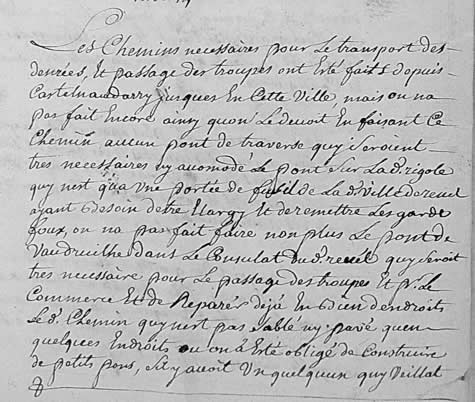 Les Chemins necessaires pour Le transport des
denrées, Et passage des troupes ont Eté faits depuis
Castelnaudarry jusques En Cette Ville, mais on na
pas fait Encore ainsy quon Le devoit En faisant Ce
Chemin aucun pont de traverse quy seroient
tres necessaires ny acomodé Le pont sur La d. rigole
quy nest qua Une portée de fusil de La d. Ville de revel
ayant besoin detre Elargy Et de remettre Les garde
foux, on na pas fait faire non plus Le pont de
Vaudruilhe dans Le Consulat du d. revel quy seroit
tres necessaire pour Le passage des troupes Et pr. Le
Commerce Et de Reparer déja En bien dendroits
Le d. Chemin quy nest pas sablé ny pavé quen
quelques Endroits ou on à Eté obligé de Construire
de petits pons, sil y avoit Un quelquun quy Veillat